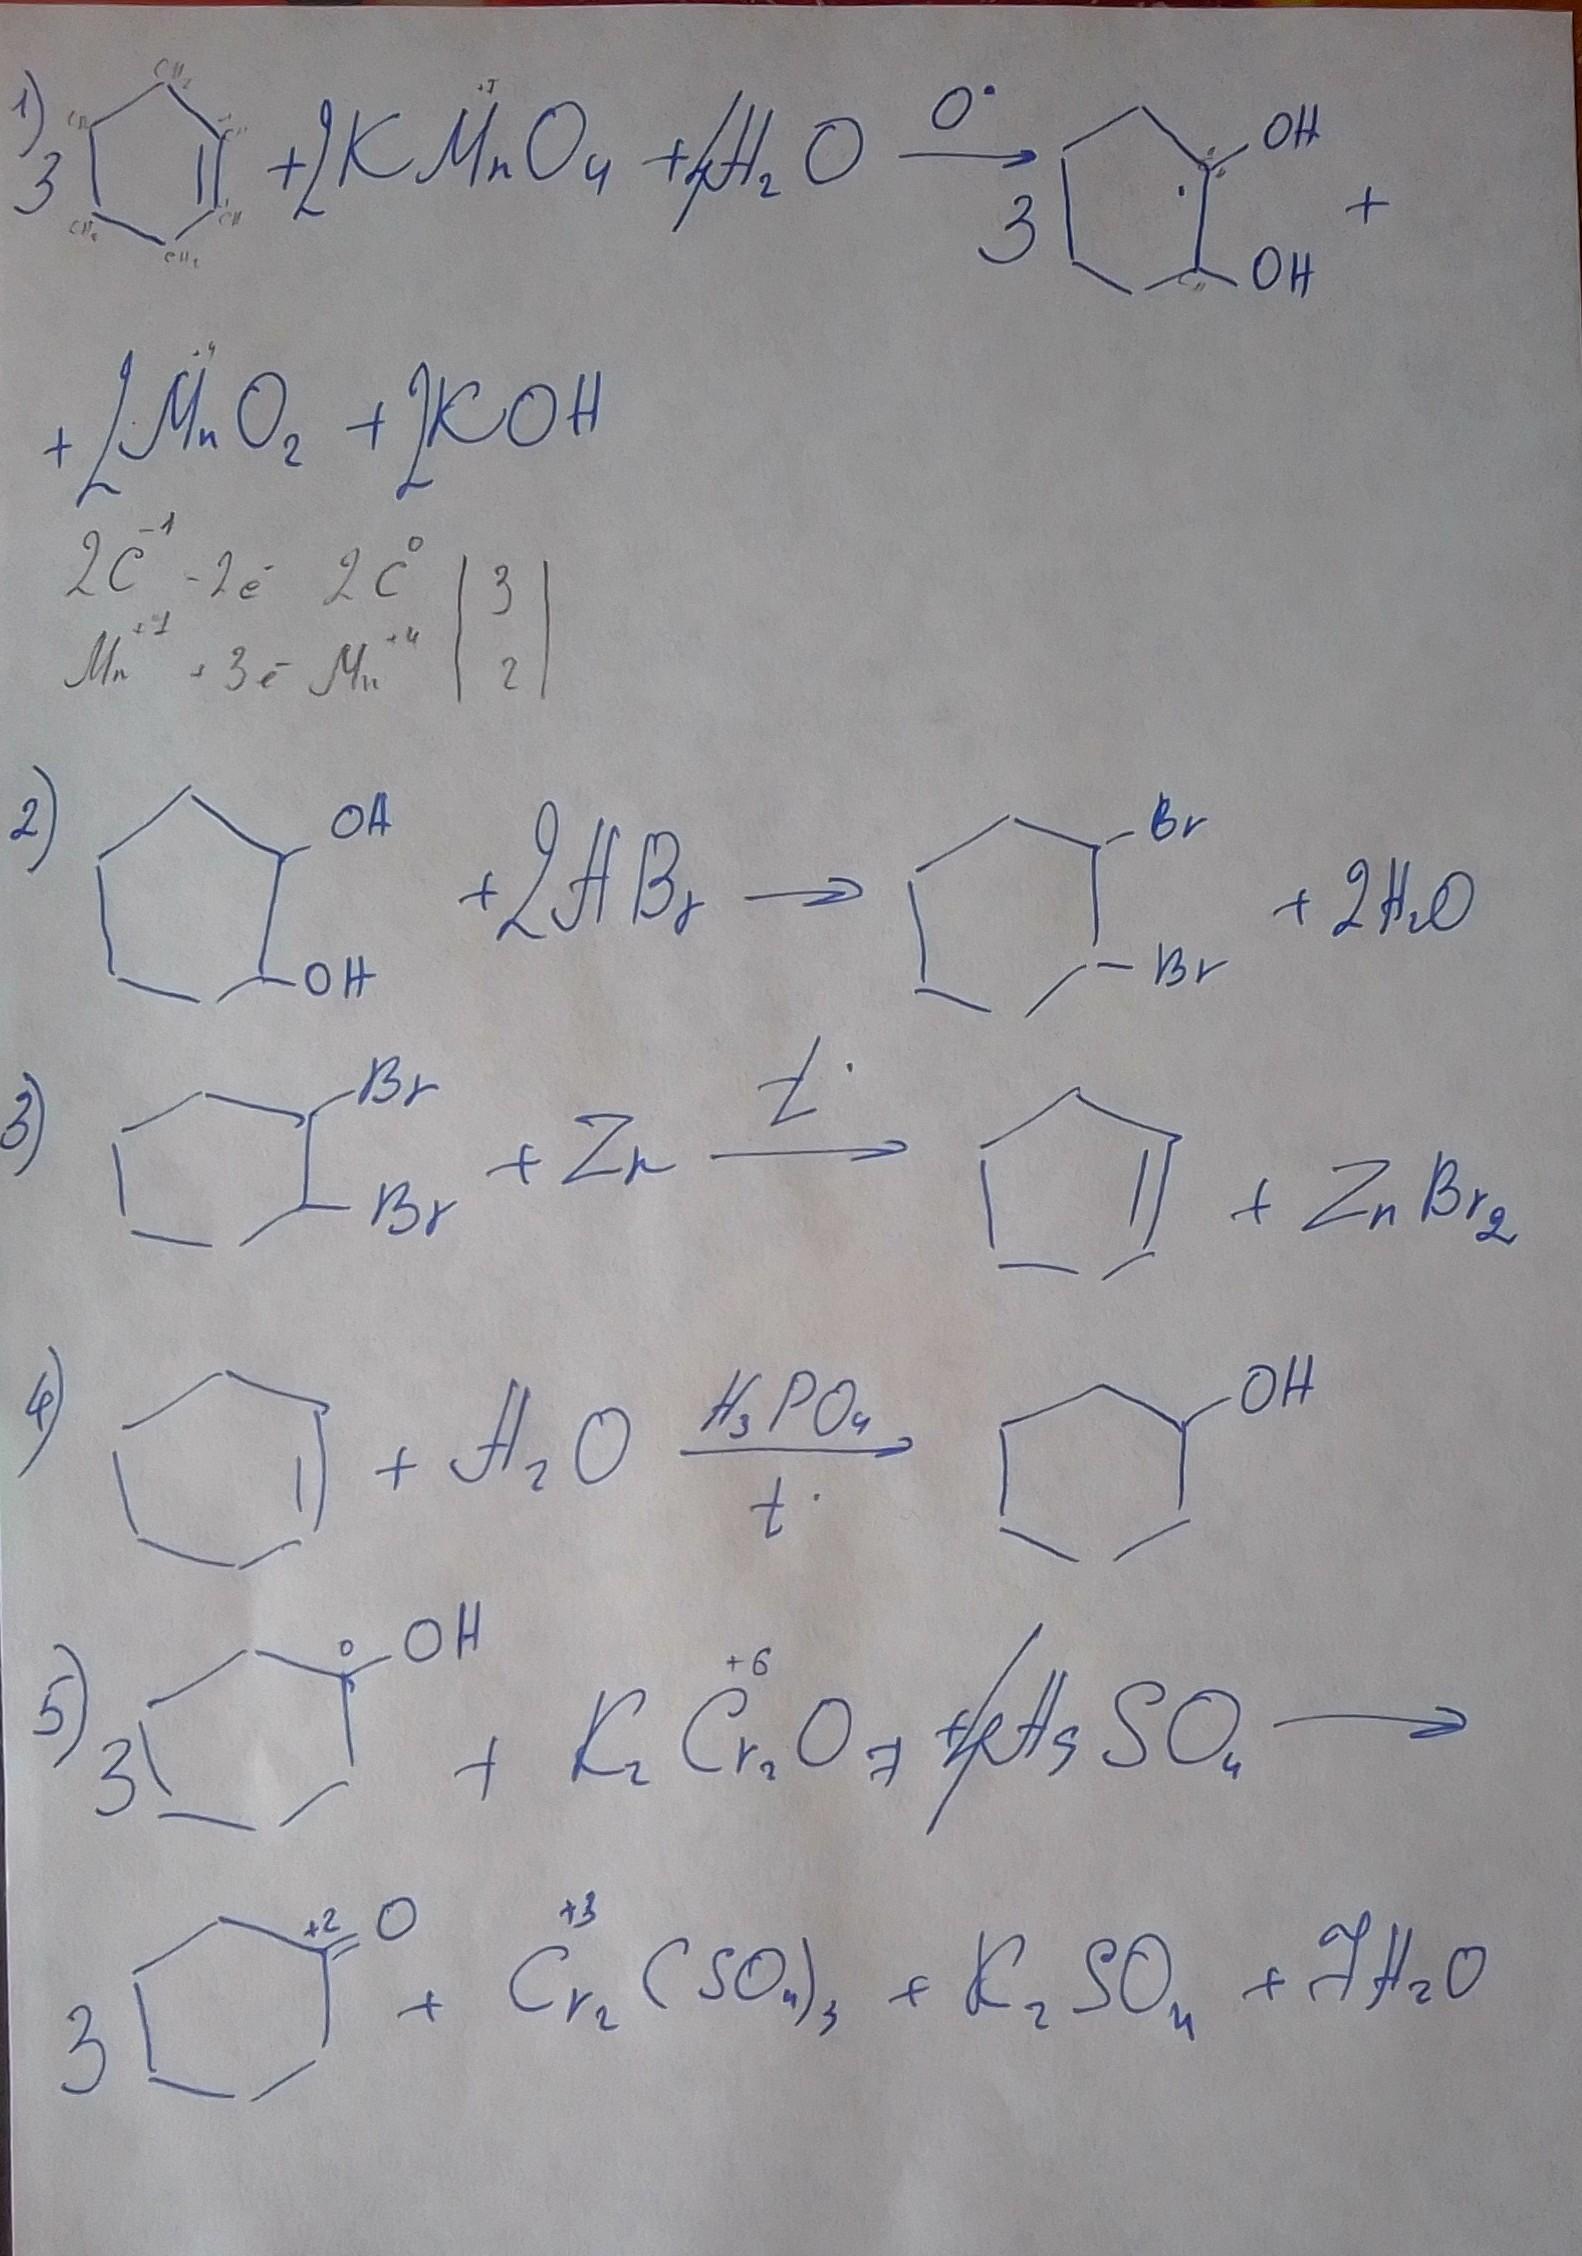 1) 3 CH₂ CH CH CH₂ CH₂ + 2KMn⁺⁷O₄ + 4H₂O 0° → 3 OH OH +
+ 2Mn⁺⁴O₂ + 2KOH
2C⁻¹ - 2ē 2C⁰ | 3 |
Mn⁺⁷ + 3ē Mn⁺⁴ | 2 |
2) OH OH + 2HBr → Br Br + 2H₂O
3) Br Br + Zn t° → + ZnBr₂
4) + H₂O H₃PO₄ t° → OH
5) 3 0 OH + K₂Cr⁺⁶₂O₇ + 4H₂SO₄ →
3 +2 O + Cr⁺³₂(SO₄)₃ + K₂SO₄ + 7H₂O